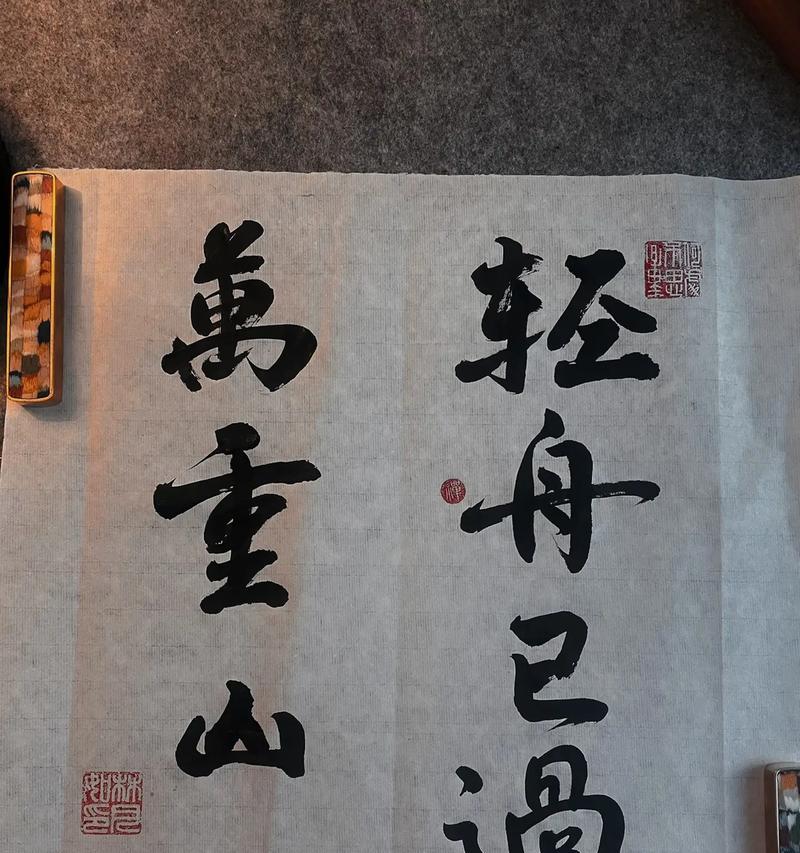 轻舟已過
萬重山
禪